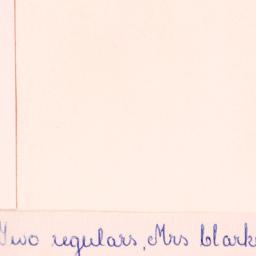 Two regulars, Mrs Clark